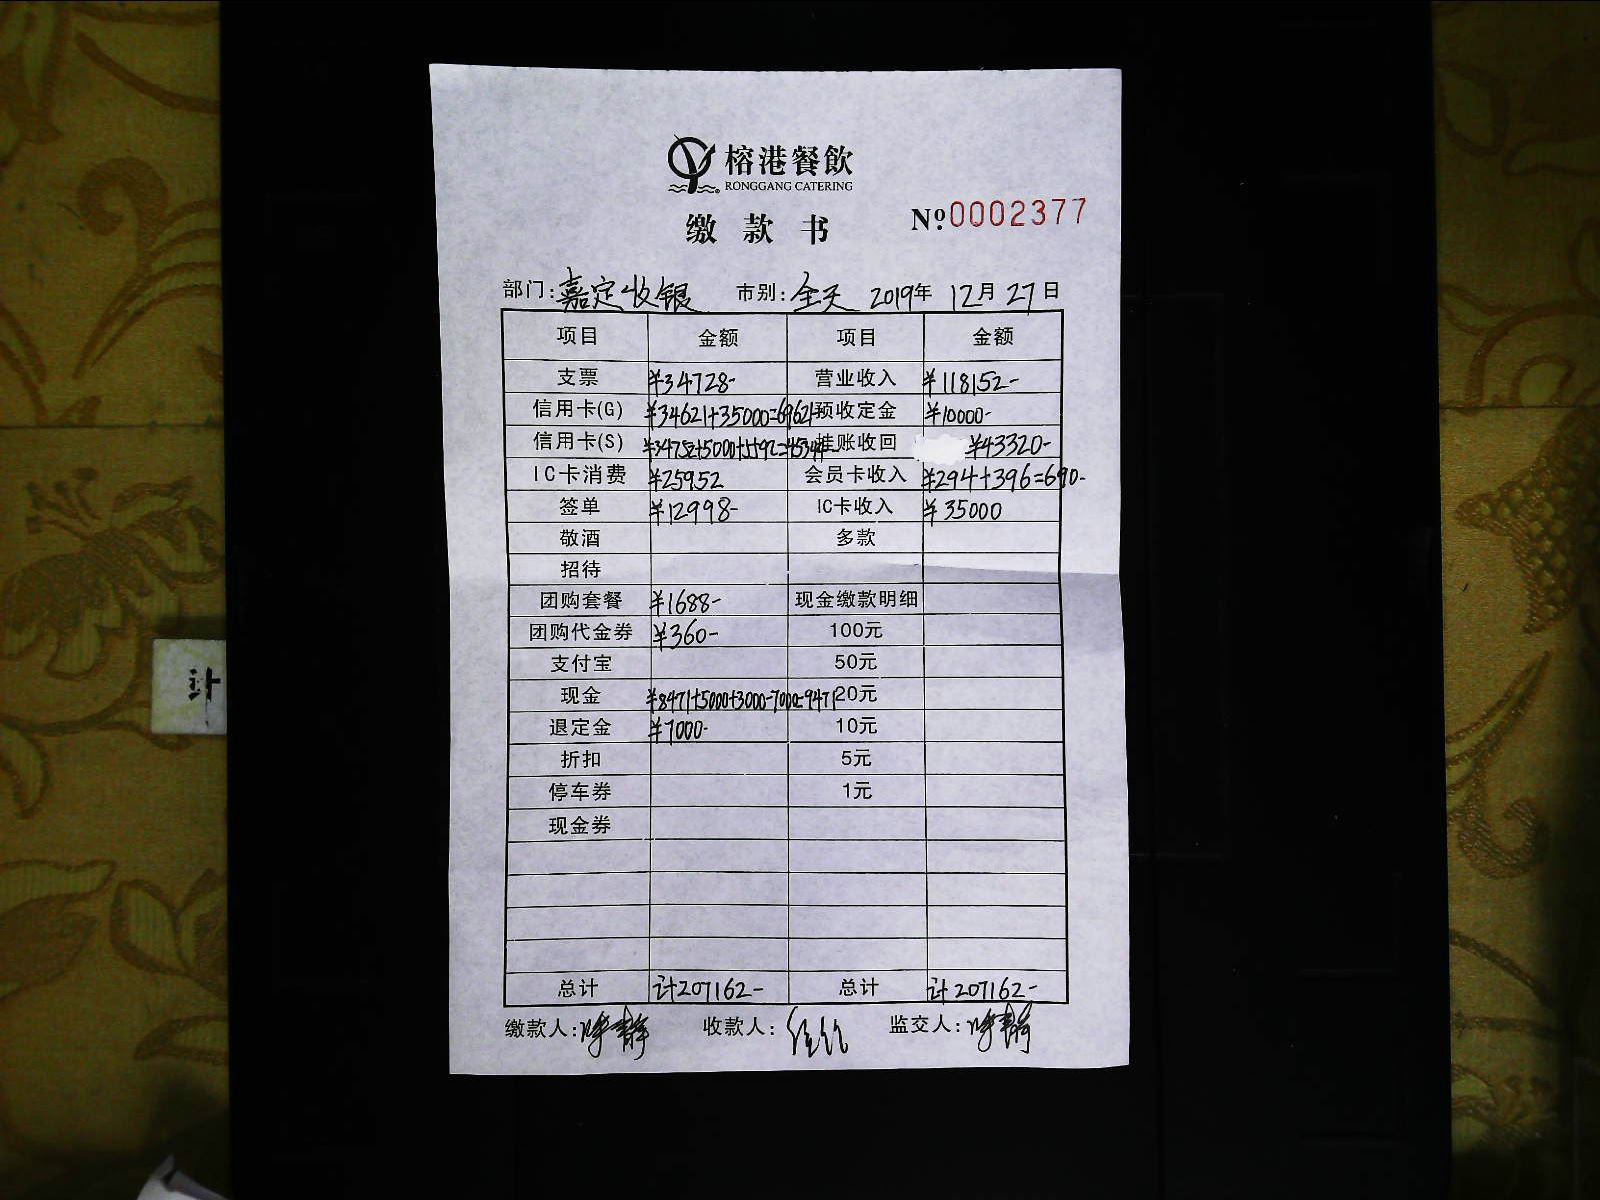 榕港餐飲
RONGGANG CATERING
缴款书 №0002377
部门:嘉定收银 市别:全天 2019年12月27日
项目 金额 项目 金额
支票 ¥34728- 营业收入 ¥118152-
信用卡(G) ¥34621+35000=69621- 预收定金 ¥10000-
信用卡(S) ¥34752+5000+5592=45344- 挂账收回 ¥43320-
IC卡消费 ¥25952 会员卡收入 ¥294+396=690-
签单 ¥12998- IC卡收入 ¥35000
敬酒 多款
招待
团购套餐 ¥1688- 现金缴款明细
团购代金券 ¥360- 100元
支付宝 50元
现金 ¥8471+5000+3000-7000=9471 20元
退定金 ¥7000- 10元
折扣 5元
停车券 1元
现金券
总计 计207162- 总计 计207162-
缴款人: 收款人: 监交人: